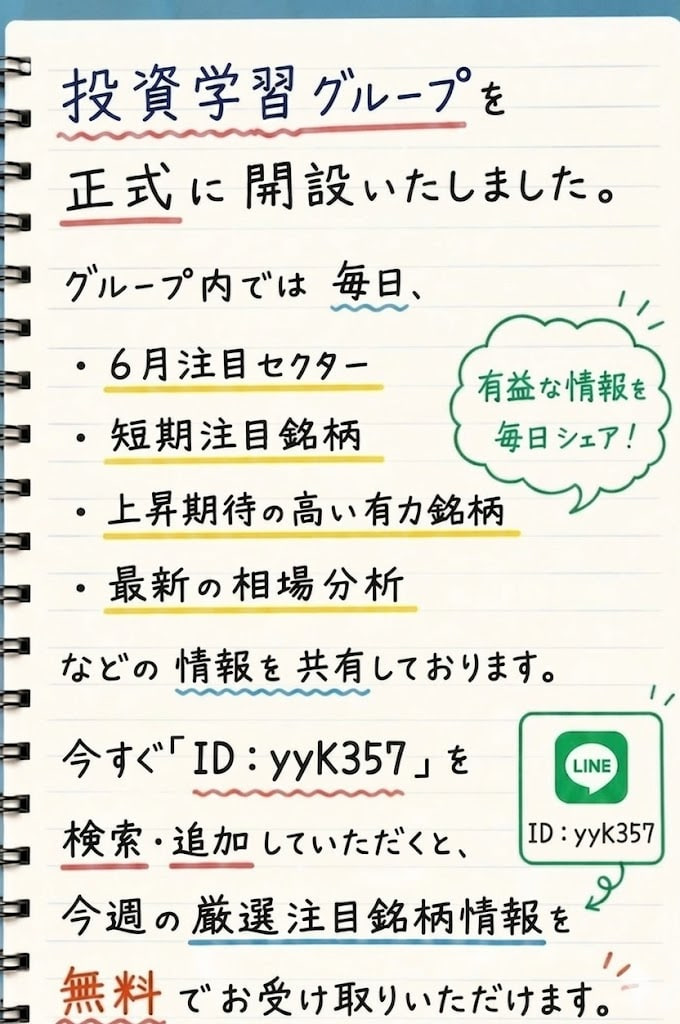 投資学習グループを
正式に開設いたしました。
グループ内では 毎日、
・6月注目セクター
・短期注目銘柄
・上昇期待の高い有力銘柄
・最新の相場分析
有益な情報を
毎日シェア!
などの 情報を 共有しております。
今すぐ「ID:yyK357」を
検索・追加していただくと、
LINE
ID:yyK357
今週の厳選注目銘柄情報を
無料でお受け取りいただけます。